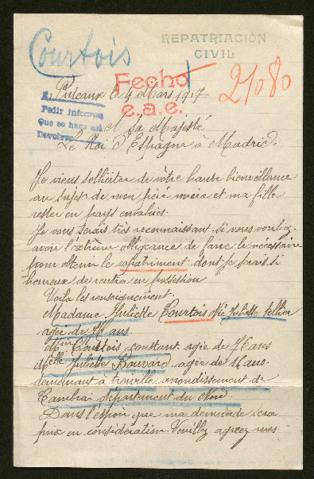 Courtois
REPATRIACIÓN
CIVIL
Puteaux le 4 Mars 1917
Fecho
e.a.e.
21080
Pedir informes
Que se haga así
Devolver
A Sa Majesté
Le Roi d'Espagne à Madrid.
Je viens solliciter de vôtre haute bienveillance
au sujet de mon père mère et ma fille
restée en pays envahis.
Je vous serais très reconnaissant, si vous vouliez
avoir l'extrême obligeance de faire le nécessaire
pour obtenir le rapatriement dont je serais si
heureux de rentrer en possession
Voilà les renseignements.
Madame Juliette Courtois née Juliette
agée de ans.
Mr Courtois constant agée de 76 ans
Melle Juliette Bouvard agée de 11 ans.
demeurant à arrondissement de
Cambrai département du Nord
Dans l'espoir que ma demande sera
prise en considération Veuillez agréez mes